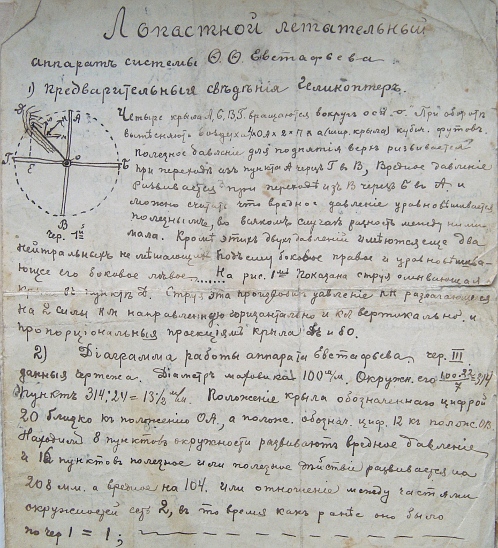 Лопастной летательный
аппаратъ системы Ѳ. Ѳ. Евстафьева
1) Предварительныя свѣдѣнія Геликоптеръ.
Четыре крыла А, Б, В, Г. вращаются вокругъ оси о. При оборотѣ
вытѣсняютъ воздуха кубич. футовъ.
Полезное давленіе для поднятія верхъ развивается
при переходѣ изъ пункта А черезъ Г въ В, Вредное давленіе
развивается при переходѣ изъ В черезъ Б въ А и
можно считать что вредное давленіе уравновѣшивается
полезнымъ, во всякомъ случаѣ разность между ними
мала. Кромѣ этихъ двухъ давленій имѣются еще два
нейтральныхъ не мѣшающихъ подъему боковое правое и уравновѣшива-
ющее его боковое лѣвое....... На рис. 1 показана струя омывающая
въ пунктѣ Д. Струя эта производитъ давленіе разлагающееся
на 2 силы КМ направленную горизонтально и вертикально. и
пропорціональныя проекціямъ крыла и
2) Діаграмма работы аппарата Евстафьева. чер. III
данныя чертежа. Діаметръ маховика 100 м/м. Окружн. его 100·22/7 = 314
Пунктъ 314:24 = 13½ м/м. Положеніе крыла обозначеннаго цифрой
20 близко къ положенію ОА, а полож. обознач. циф. 12 къ полож. ОВ.
Находимъ 8 пунктовъ окружности развиваютъ вредное давленіе
и 16 пунктовъ полезное или полезное дѣйствіе развивается на
208 мм. а вредное на 104. или отношеніе между частями
окружностей есть 2, въ то время какъ ранѣе оно было
по чер 1 = 1;
А
Д
К
М
Г
о
Б
Е
В
чер. 1